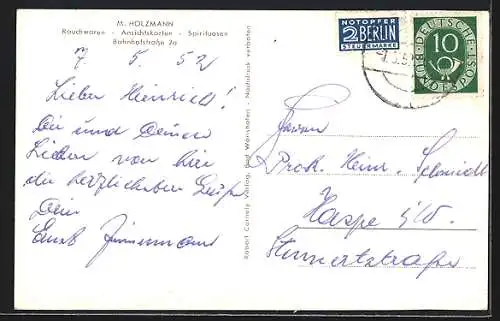 M. HOLZMANN
Rauchwaren - Ansichtskarten - Spirituosen
Bahnhofstraße 2a
7. 5. 52
Lieber Heinrich!
Dir und Deinen
Lieben von hier
die herzlichsten Grüße
Dein
Ernst Zimmermann
Robert Cornely Verlag, Bad Wörishofen - Nachdruck verboten
NOTOPFER
2 BERLIN
STEUERMARKE
DEUTSCHE
10
BUNDESPOST
Herrn
Prok. Heinr. Schmidt
Haspe i/W.